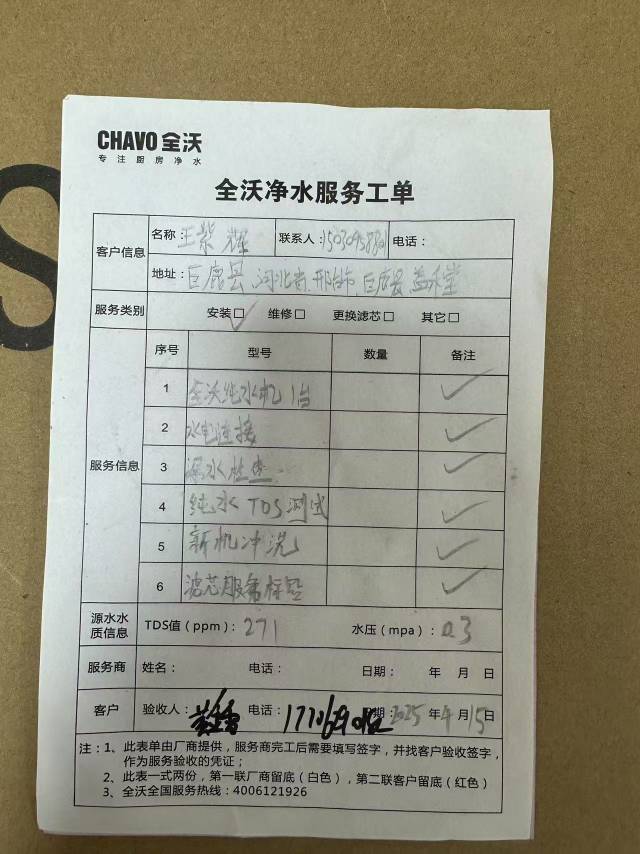 CHAVO 全沃
专注厨房净水
全沃净水服务工单
客户信息 名称：王紫辉 联系人： 电话：
地址：巨鹿县 河北省.邢台市.巨鹿县 益禾堂
服务类别 安装☑ 维修□ 更换滤芯□ 其它□
服务信息 序号 型号 数量 备注
1 全沃纯水机1台 ✓
2 水电连接 ✓
3 漏水检查. ✓
4 纯水TDS测试 ✓
5 新机冲洗 ✓
6 滤芯服务标签 ✓
源水水质信息 TDS值（ppm）：271 水压（mpa）：0.3
服务商 姓名： 电话： 日期： 年 月 日
客户 验收人： 电话： 日期：2025年4月15日
注：1、此表单由厂商提供，服务商完工后需要填写签字，并找客户验收签字，
作为服务验收的凭证；
2、此表一式两份，第一联厂商留底（白色），第二联客户留底（红色）
3、全沃全国服务热线：4006121926